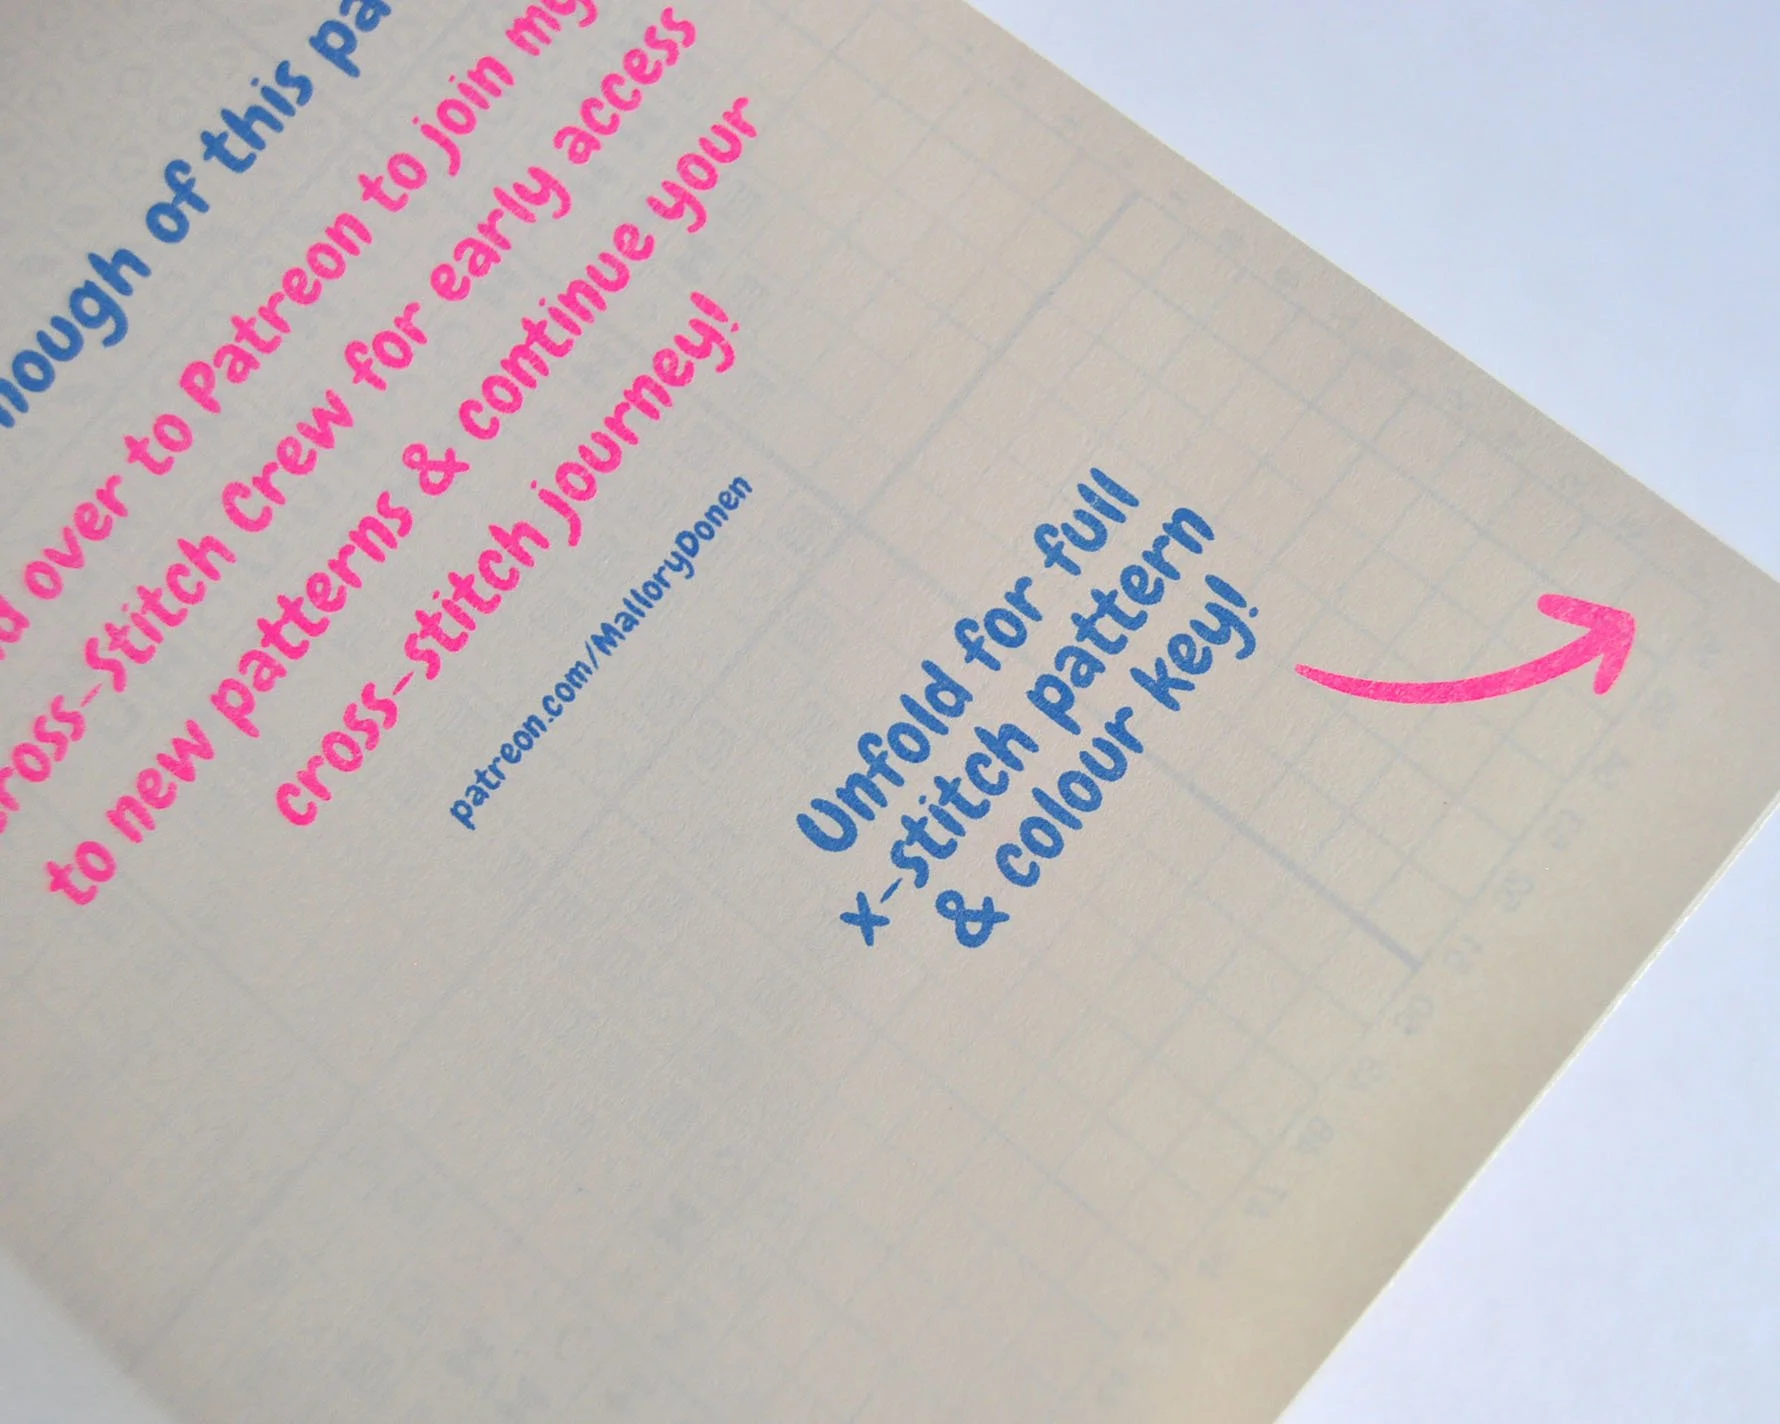 of this
over to Patreon to join my
Stitch Crew for early access
to new patterns & continue your
cross-stitch journey!
patreon.com/MalloryDonen
Unfold for full
x-stitch pattern
& colour key!